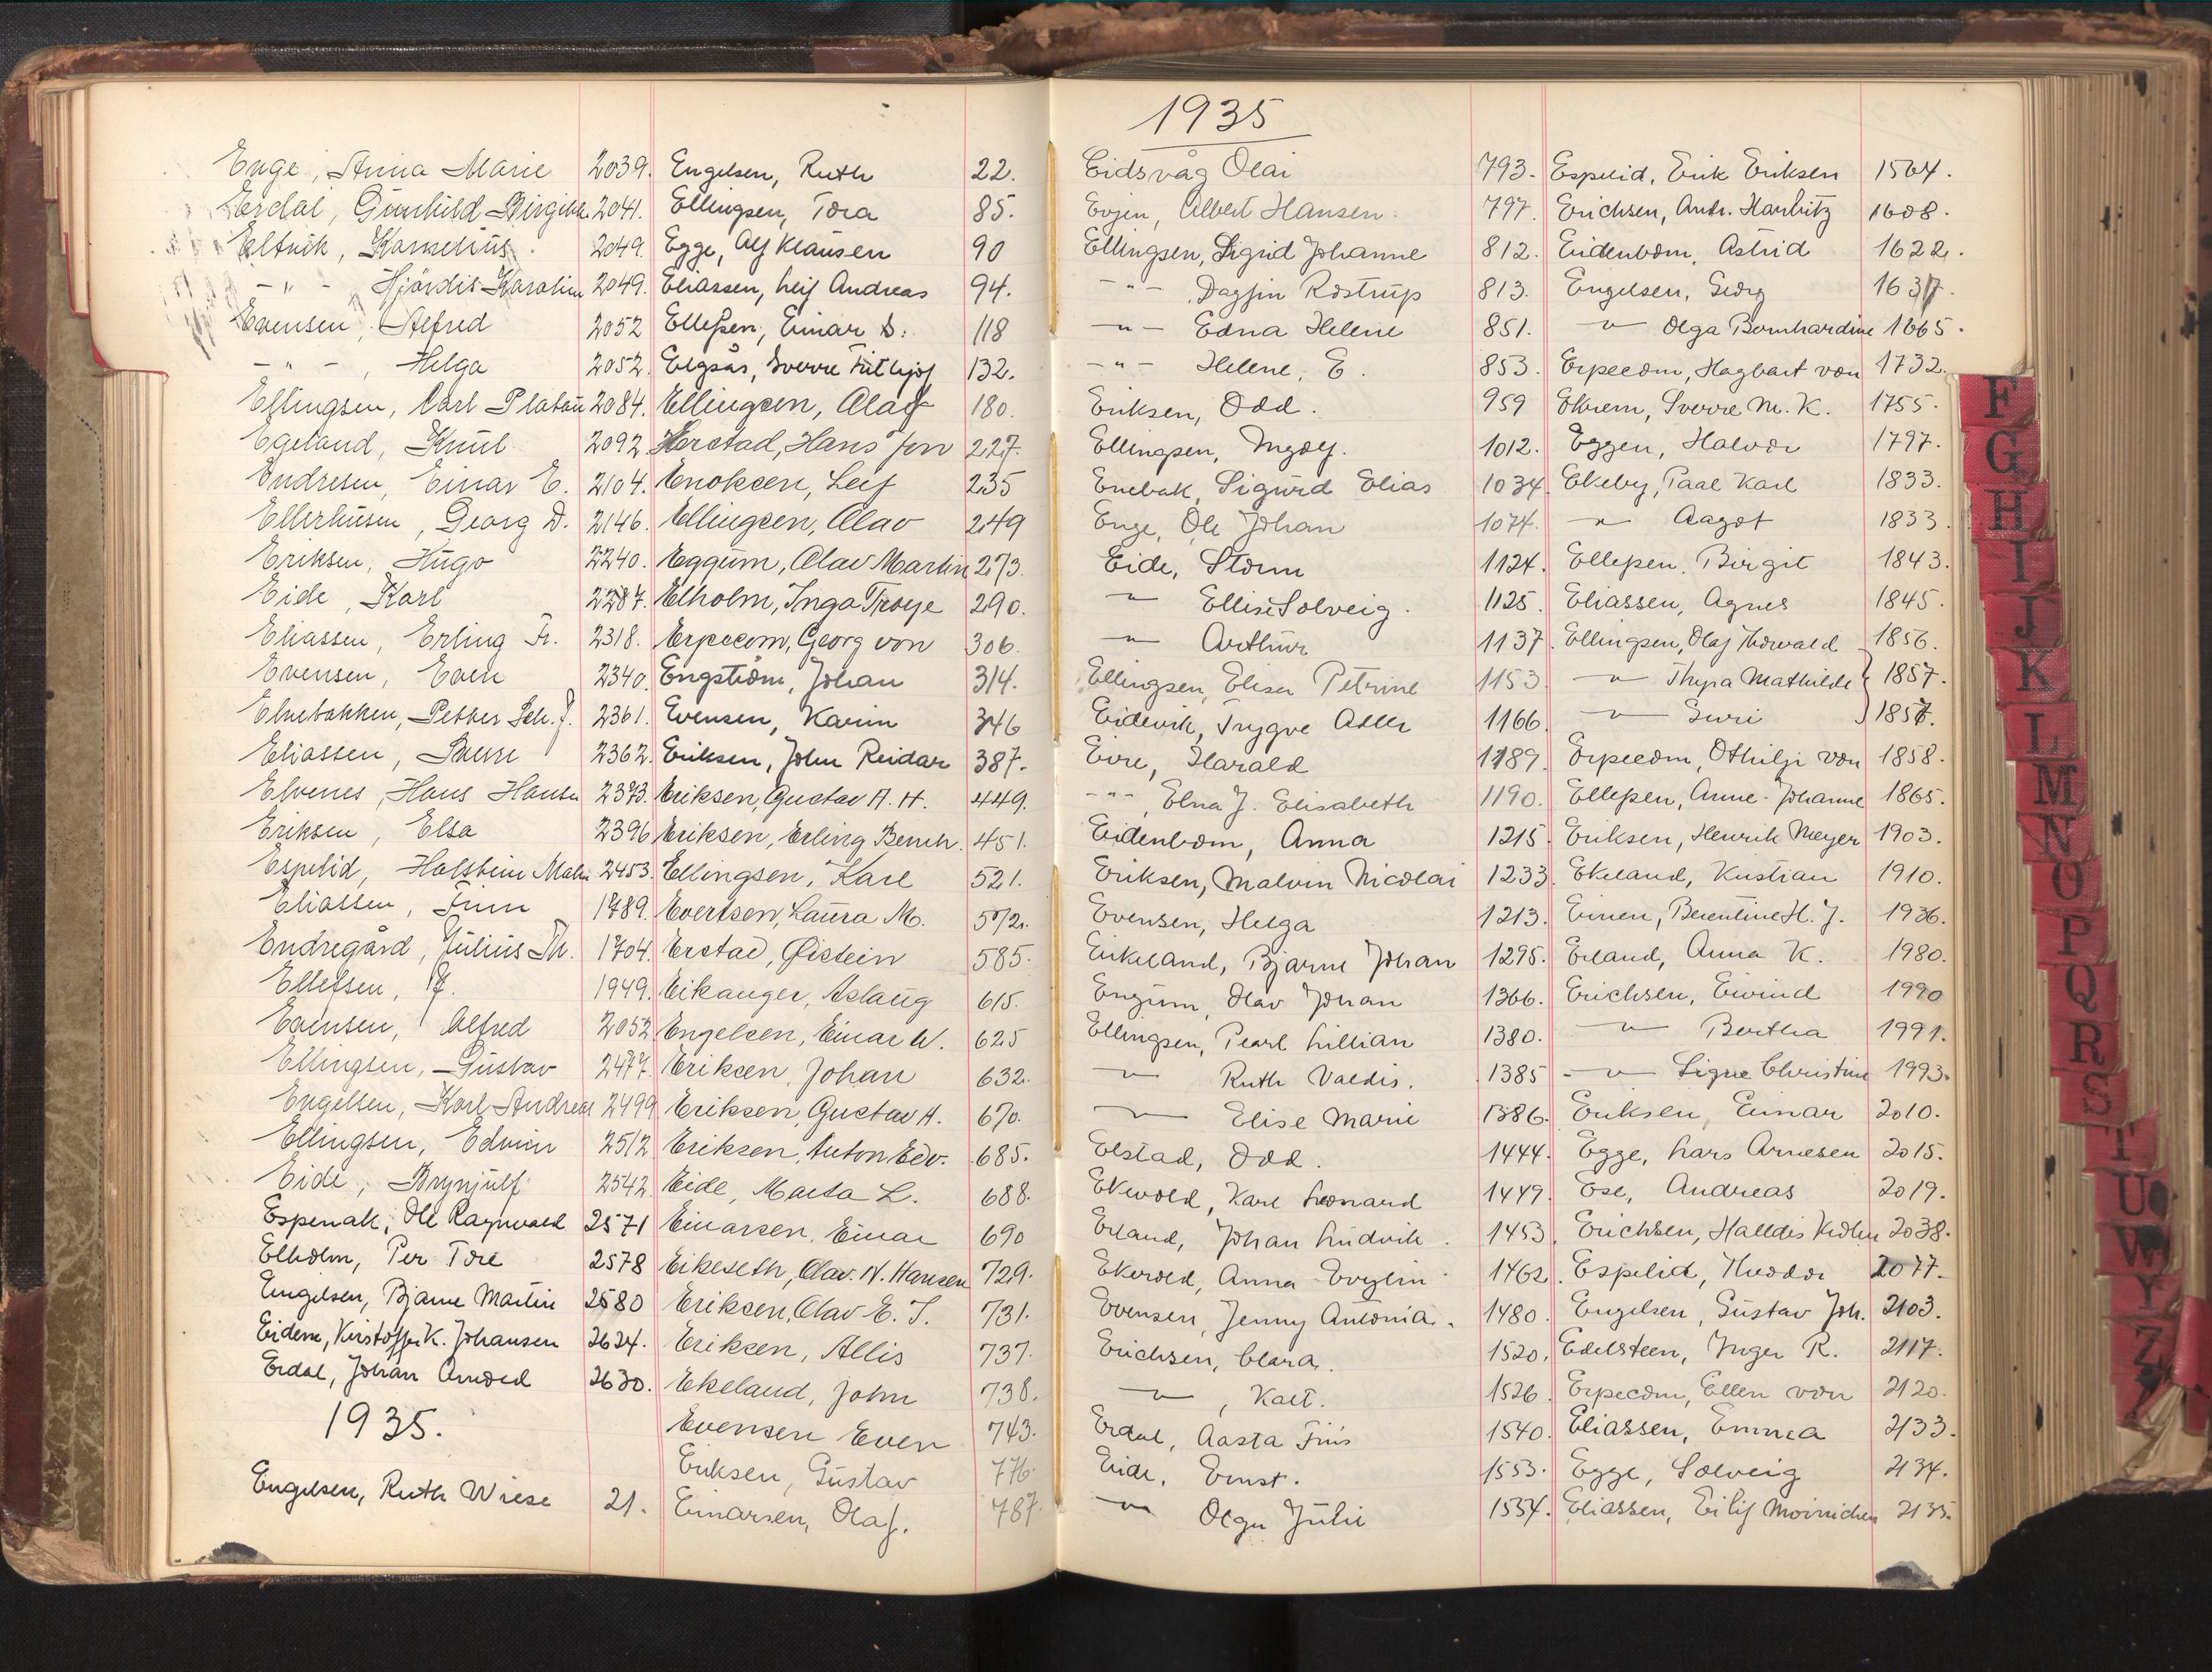 Enge, Anna Marie 2039.
Erdal, Gunhild Birgitte 2041.
Eltvik, Kornelius 2049.
-"- Hjördis Karoline 2049.
Evensen, Alfred 2052
-"-, Helga 2052.
Ellingsen, Carl Platou 2084.
Egeland, Knut 2092
Endresen, Einar E. 2104.
Ellerhusen, Georg D. 2146.
Eriksen, Hugo 2240.
Eide, Karl 2287.
Eliassen, Erling Fr. 2318.
Evensen, Even 2340.
Elnebakken, Petter Sch. J. 2361.
Eliassen, Sverre 2362.
Elvenes, Hans Hansen 2373.
Eriksen, Elsa 2396
Espelid, Holstein Malm 2453.
Eliassen, Finn 1789.
Endregård, Julius Th. 1704.
Ellefsen, J. 1949.
Evensen, Alfred 2052
Ellingsen, Gustav 2477.
Engelsen, Karl Andreas 2499
Ellingsen, Edwin 2512
Eide, Brynjulf 2542
Espenak, Ole Ragnvald 2571
Elholm, Per Tore 2578
Engelsen, Bjarne Martin 2580
Eidem, Kristoffer K. Johansen 2624.
Erdal, Johan Arnold 2630.
1935.
Engelsen, Ruth Wiese 21.
Engelsen, Ruth 22.
Ellingsen, Tora 85.
Egge, Alf Klausen 90
Eliassen, Leif Andreas 94.
Ellefsen, Einar S. 118
Elgsås, Sverre Frithjof 132.
Ellingsen, Olaf 180.
Erstad, Hans Jon 227.
Enoksen, Leif 235
Ellingsen, Olav 249
Eggum, Olav Martin 273.
Elholm, Inga Troye 290.
Erpecom, Georg von 306.
Engström, Johan 314.
Evensen, Karin 346
Eriksen, John Reidar 387.
Eriksen, Gustav A. H. 449.
Eriksen, Erling Bernh. 451.
Ellingsen, Karl 521.
Evertsen, Laura M. 572.
Erstad, Øistein 585.
Eikanger, Aslaug 615.
Engelsen, Einar W. 625
Eriksen, Johan 632.
Eriksen, Gustav A. 670.
Eriksen, Anton Edv. 685.
Eide, Marta L. 688.
Einarsen, Einar 690
Eikeseth, Olav. N. Hansen 729.
Eriksen, Olav E. T. 731.
Eriksen, Allis 737.
Ekeland, John 738.
Evensen Even 743.
Eriksen, Gustav 776.
Einarsen, Olaf. 787.
1935
Eidsvåg Olai 793.
Evjen, Albert Hansen. 797.
Ellingsen, Sigrid Johanne 812.
-"- Dagfin Rostrup 813.
-"- Edna Helene 851.
-"- Helene, E. 853.
Eriksen, Odd. 959
Ellingsen, Ingolf. 1012.
Enebak, Sigurd Elias 1034.
Enge, Ole Johan 1074.
Eide, Storm 1124.
" Ellise Solveig. 1125.
" Arthur 1137.
Ellingsen, Elisa Petrine 1153.
Eidevik, Trygve Adler 1166.
Eire, Harald 1189.
-"- Elna J. Elisabeth 1190.
Eidenbom, Anna 1215.
Eriksen, Malvin Nicolai 1233.
Evensen, Helga 1213.
Eikeland, Bjarne Johan 1295.
Engum, Olav Johan 1366.
Ellingsen, Pearl Lillian 1380.
" Ruth Valdis. 1385
" Elise Marie 1386.
Elstad, Odd. 1444.
Ekevold, Karl Leonard 1449.
Erland, Johan Ludvik. 1453.
Ekevold, Anna Evylin 1462.
Evensen, Jenny Antonia. 1480.
Erichsen, Clara. 1520.
", Kalt. 1526.
Erdal, Aasta Friis 1540.
Eide, Ernst. 1553.
" Olga Julie 1554.
Espelid, Erik Eriksen 1564.
Erichsen, Andr. Harbitz 1608.
Eidenbom, Astrid 1622.
Engelsen, Georg 1637.
" Olga Bernhardine 1665.
Erpecom, Hagbart von 1732.
Ekrem, Sverre M. K. 1755.
Eggen, Halvor 1797.
Ekeby, Paal Karl 1833.
" Aagot 1833.
Ellefsen, Birgit 1843.
Eliassen, Agnes 1845.
Ellingsen, Olaf Thorvald 1856.
" Thyra Mathilde 1857.
" Guri 1857.
Erpecom, Othilje von 1858.
Ellefsen, Anne-Johanne 1865.
Eriksen, Henrik Meyer 1903.
Ekeland, Kristian 1910.
Einen, Berentine H. J. 1936.
Erland, Anna K. 1980.
Erichsen, Eivind 1990
" Bertha 1991.
" Signe Christine 1993.
Eriksen, Einar 2010.
Egge, Lars Arnesen 2015.
Ese, Andreas 2019.
Erichsen, Halldis 2038.
Espelid, Theodor 2077.
Engelsen, Gustav Joh. 2103.
Edelsteen, Inger R. 2117.
Erpecom, Ellen von 2120.
Eliassen, Emma 2133.
Egge, Solveig 2134.
Eliassen, Eilif Moinichen 2135.
F
G
H
I
J
K
L
M
N
O
P
Q
R
S
T
U
W
Y
Z